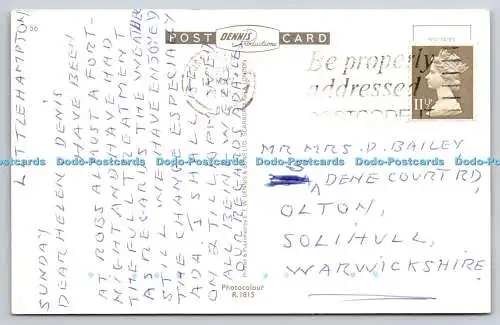 LITTLEHAMPTON
SUNDAY
DEAR HELEN DENIS
I HAVE BEEN
AT ROBS ALMOST A FORT-
NIGHT AND HAVE HAD
THE FULL TREATMENT
AS REGARDS THE WEATHER
STILL WE HAVE ENJOYED
THE CHANGE ESPECIALLY
ADA. I SHALL BE
ON 2 TILL
ALL BEING
OUR REGARDS
POST DENNIS CARD
Productions
Be properly
addressed
POSTCODE IT
11½P
MR MRS. D. BAILEY
6 DENE COURT RD,
OLTON,
SOLIHULL,
WARWICKSHIRE
Photocolour
R.1815
Dodo-Postcards Dodo-Postcards Dodo-Postcards Dodo-Postcards Dodo-Postcards Dodo-Postcards